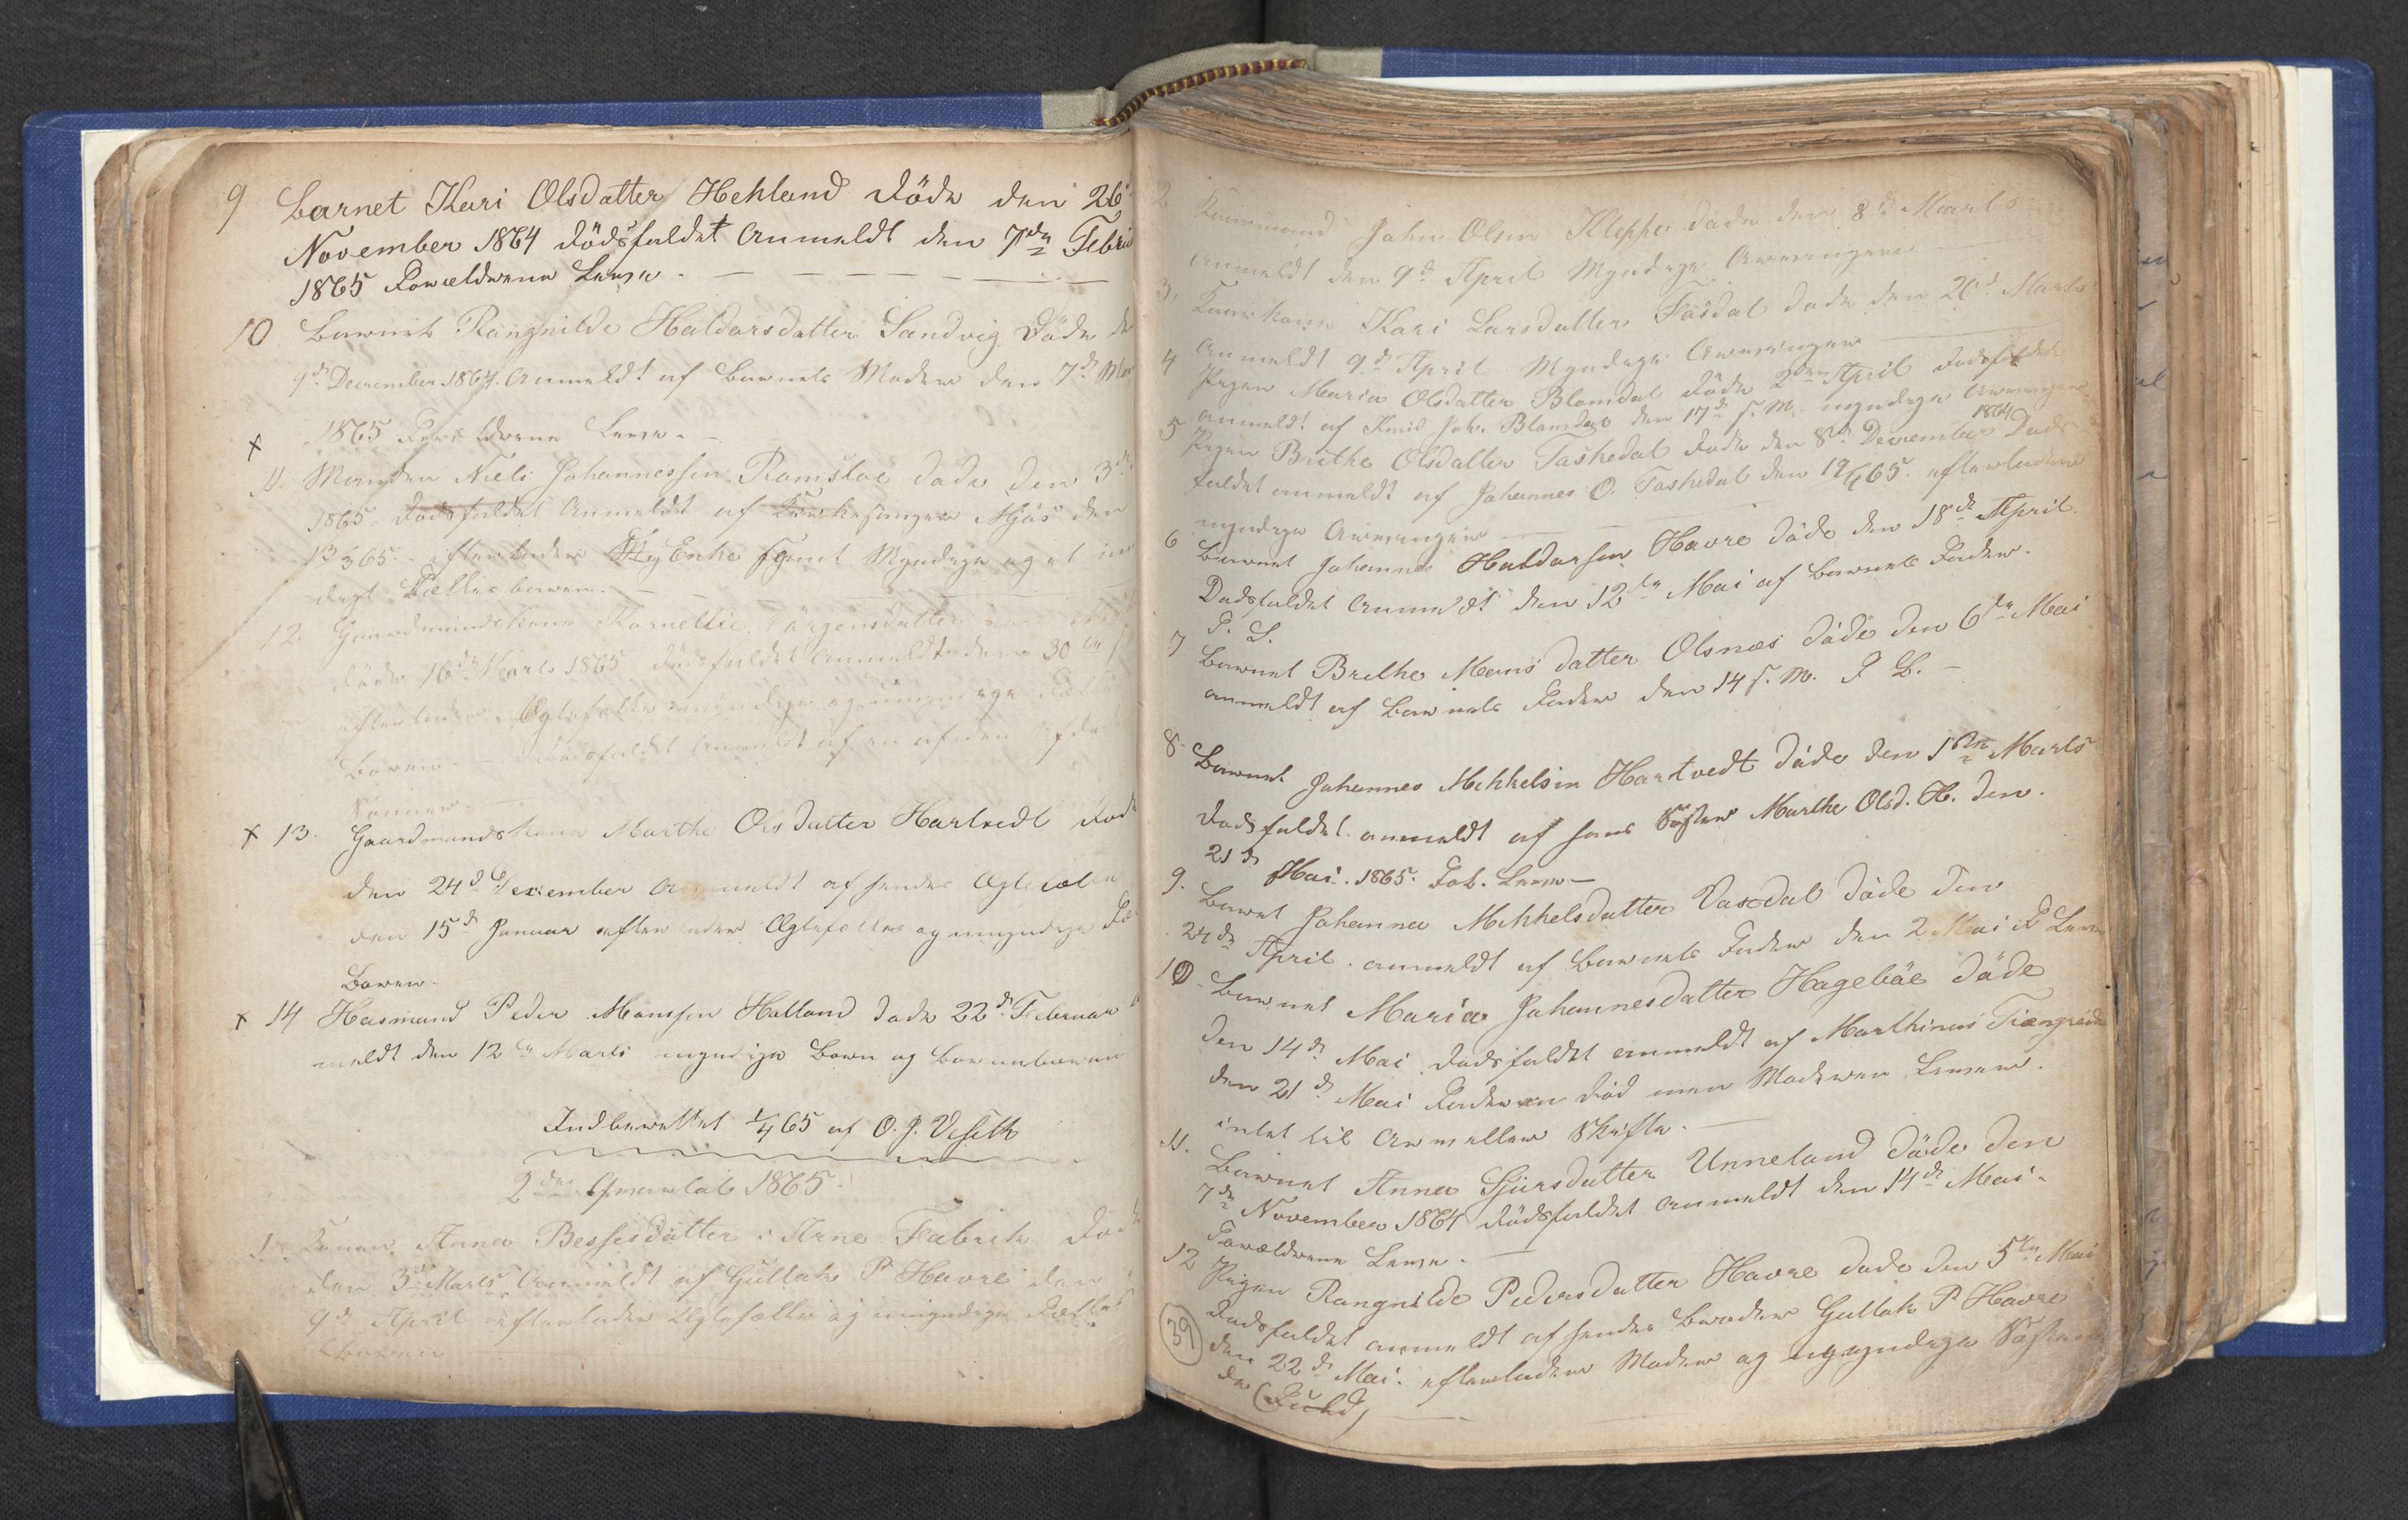 9 Barnet Kari Olsdatter Hehland döde den 26
November 1864 dödsfaldet Anmeldt den 7de Febru
1865 Forældrene Lever.
10 Barnet Rangnilde Haldorsdatter Sandvig döde d
9d December 1864. Anmeldt af Barnets Moder den 7d Ma
x 1865 Forældrene Lever.
11 Manden Niels Johannessen Ramsloe döde den 3
1865 Dödsfaldet Anmeldt af Kirkesanger Mjös den
13/3 65. efterlader Enke samt Myndige og et
Fælles barn.
12. Gaardmandskone Kornellie Jörgensdatter
döde 16d Marts 1865 dödsfaldet Anmeldt den 30
efterlader Ægtefælle myndige og umyndige
Börn. Dödsfaldet Anmeldt af en af den
Sönner.
x 13. Gaardmandskone Marthe Olsdatter Hartvedt död
den 24d December Anmeldt af hendes Ægtefælle
den 15d Januar efterlader Ægtefælle og myndige Fæ
Börn.
x 14 Huusmand Peder Monssen Halland döde 22d Februar
meldt den 12 Marts myndige Börn og Börnebörn
Indberettet 1/4 65 af O. J. Veseth
2det Qvartal 1865
1. Konen Anna Bessesdatter i Arne Fabrik död
den 3d Marts Anmeldt af Gullak P Havre den
9d April efterlader Ægtefælle og myndige Fælles
börn
2 Kaarmand John Olsen Kleppe döde den 8d Marts
Anmeldt den 9d April Myndige Arvinger
3. Kaarkone Kari Larsdatter Tösdal döde den 20d Marts
Anmeldt 9d April Myndige Arvinger
4 Pigen Maria Olsdatter Blomdal döde 2den April dödsfaldet
anmeldt af Knud Joh. Blomdal den 17d s. M. myndige Arvinger
5 Pigen Brithe Olsdatter Taskedal döde den 8d December 1864 Döds
faldet anmeldt af Johannes O. Taskedal den 19/4 65. efterlader
myndige Arvinger
6 Barnet Johannes Haldorsen Havre döde den 18d April.
Dödsfaldet Anmeldt den 12te Mai af Barnets Fader.
F. L.
7 Barnet Brithe Monsdatter Olsnæs döde den 6te Mai
anmeldt af Barnets Fader den 14 s. M. F L.
8. Barnet Johannes Mikkelsen Hartvedt döde den 1ste Marts
dödsfaldet anmeldt af hans Söster Marthe Olsd. H. den.
21d Mai. 1865. For. Lever
9. Barnet Johanna Mikkelsdatter Vaxdal döde den
24d April. anmeldt af Barnets Fader den 2 Mai F Lever
10. Barnet Maria Johannesdatter Hageböe döde
den 14d Mai dödsfaldet anmeldt af Marthinus
den 21d Mai Faderen död men Moderen Lever.
intet til Arv eller Skifte.
11. Barnet Anna Sjursdatter Unneland döde den
7de November 1864 dödsfaldet anmeldt den 14d Mai.
Forældrene Lever.
12 Pigen Rangnilde Pedersdatter Havre döde den 5te Mai
dödsfaldet anmeldt af hendes Broder Gullak P. Havre
39 den 22d Mai. efterlader Moder og myndige Sösken
de (Fuld)